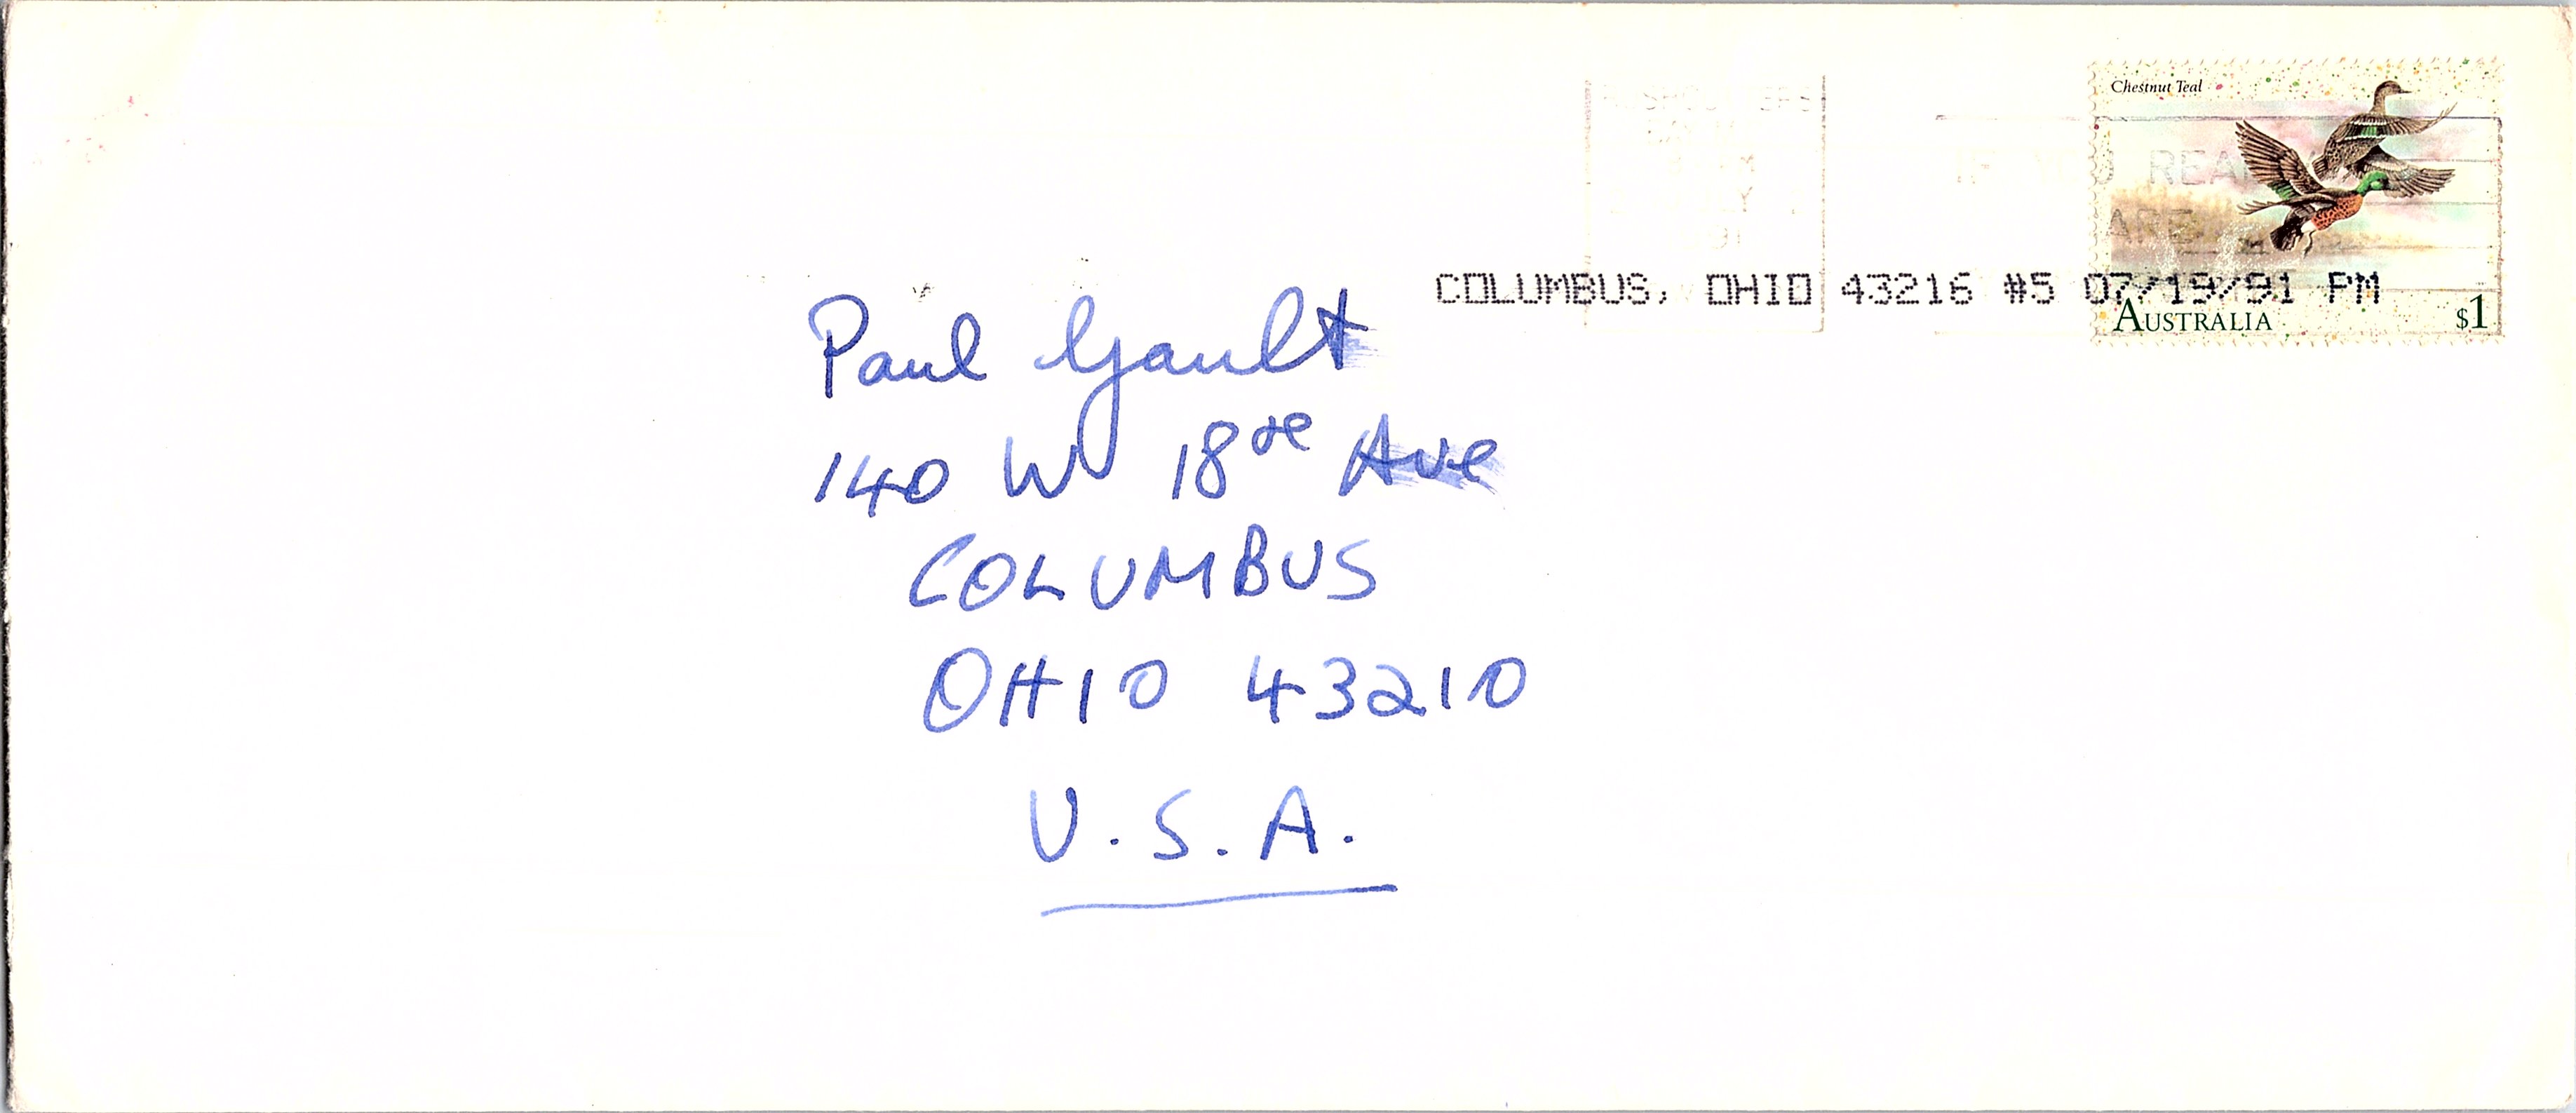 Chestnut Teal
REA
ARE
COLUMBUS, OHIO 43216 #5 07/19/91 PM
AUSTRALIA $1
Paul Gault
140 W 18th Ave
COLUMBUS
OHIO 43210
U.S.A.